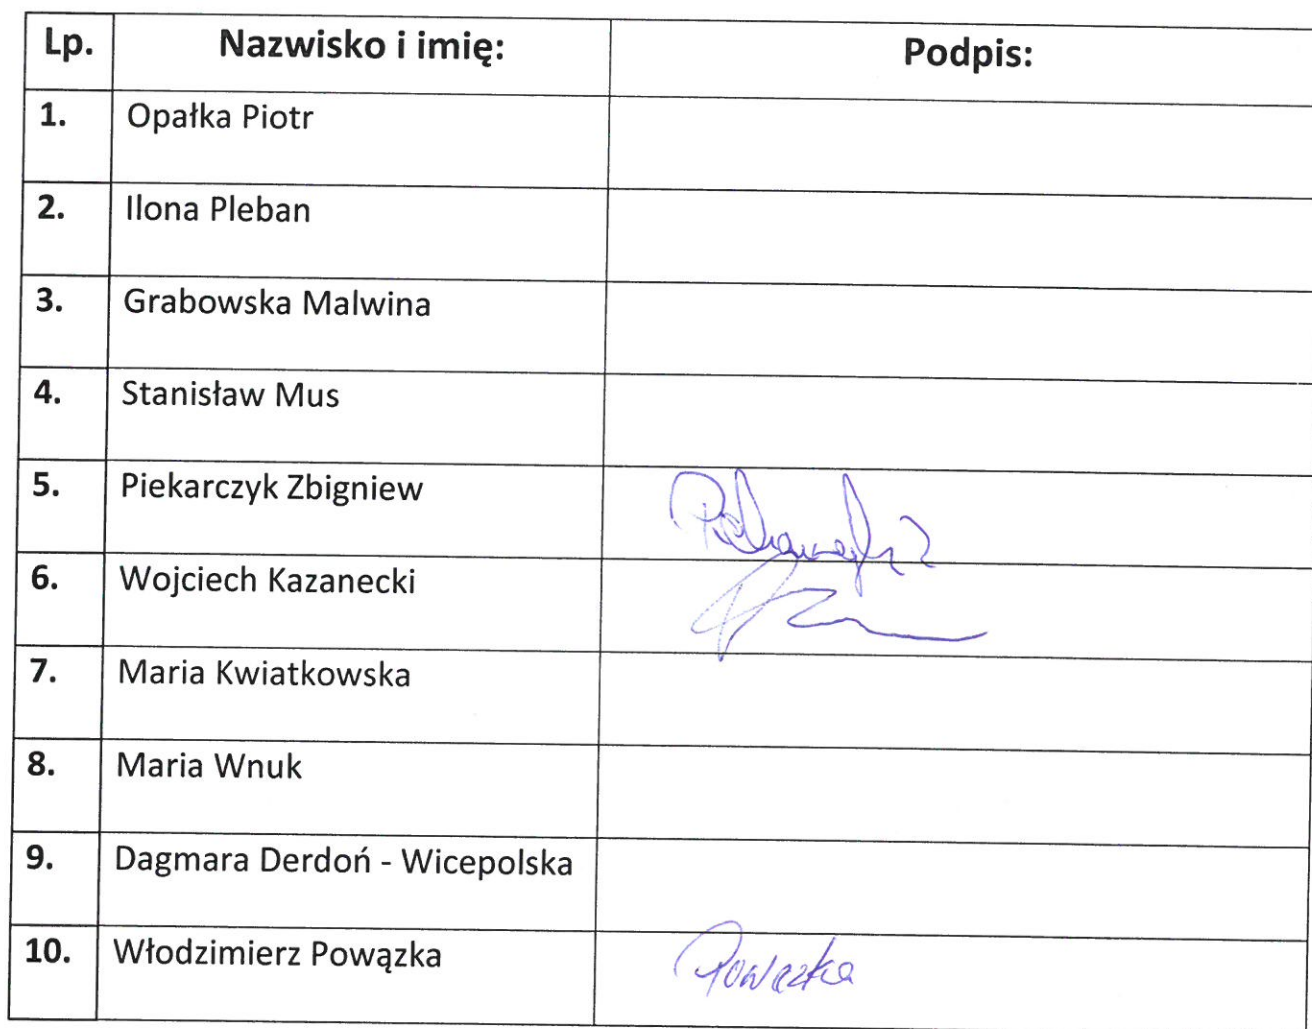 Lp. Nazwisko i imię: Podpis:
1. Opałka Piotr
2. Ilona Pleban
3. Grabowska Malwina
4. Stanisław Mus
5. Piekarczyk Zbigniew
6. Wojciech Kazanecki
7. Maria Kwiatkowska
8. Maria Wnuk
9. Dagmara Derdoń - Wicepolska
10. Włodzimierz Powązka Powązka